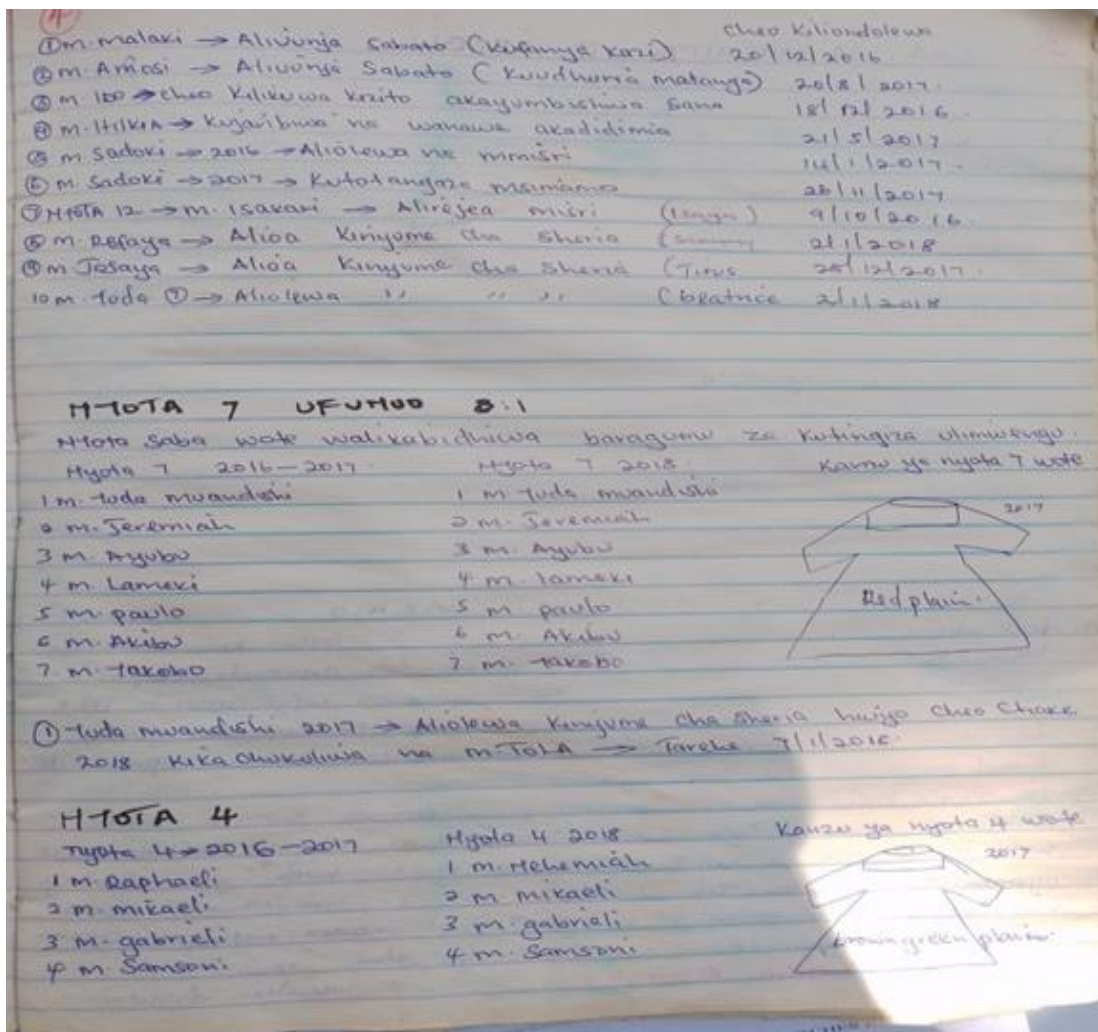 4
cheo Kiliondolewa
① m. malaki → Alivunja Sabato (Kufanya Kazi) 20/12/2016
② m. Amosi → Alivunja Sabato (Kuudhuria matanga) 20/8/2017.
③ m. IDD → cheo Kilikuwa Kizito akayumbishwa sana 18/12/2016.
④ m. HilkiA → Kujaribiwa na wanawe akadidimia 21/5/2017
⑤ m. Sadoki → 2016 → Aliolewa na mmisri 14/1/2017.
⑥ m. Sadoki → 2017 → Kutotangaza msimamo 26/11/2017
⑦ 12 → m. Isakari → Alirejea misri 9/10/2016.
⑧ m. Refaya → Alioa Kinyume cha Sheria 2/1/2018
⑨ m. Jesaya → Alioa Kinyume cha Sheria (Titus 25/12/2017.
10 m. Yuda ⑦ → Aliolewa ,, ,, ,, (beatrice 2/1/2018
7 UFUNUO 8:1
Nyota Saba wote walikabidhiwa baragumu za Kutingiza ulimwengu.
Nyota 7 2016-2017.
1 m. Yuda mwandishi
2 m. Jeremiah
3 m. Ayubu
4 m. Lameki
5 m. paulo
6 m. Akibu
7. m. Yakobo
Nyota 7 2018.
1 m Yuda mwandishi
2 m. Jeremiah
3 m. Ayubu
4 m. Lameki
5 m. paulo
6 m. Akibu
7 m. Yakobo
Kanzu ya nyota 7 wote
2017
Red plain.
① Yuda mwandishi 2017 → Aliolewa Kinyume cha Sheria hivyo Cheo Chake
2018 KiKachukuliwa na m → Tarehe
4
Nyota 4 → 2016-2017
1 m. Raphaeli
2 m. mikaeli
3 m. gabrieli
4 m. Samsoni
Nyota 4 2018
1 m. Nehemiah
2 m. mikaeli
3 m. gabrieli
4 m. Samsoni
Kanzu ya nyota 4 wote
2017
green plain